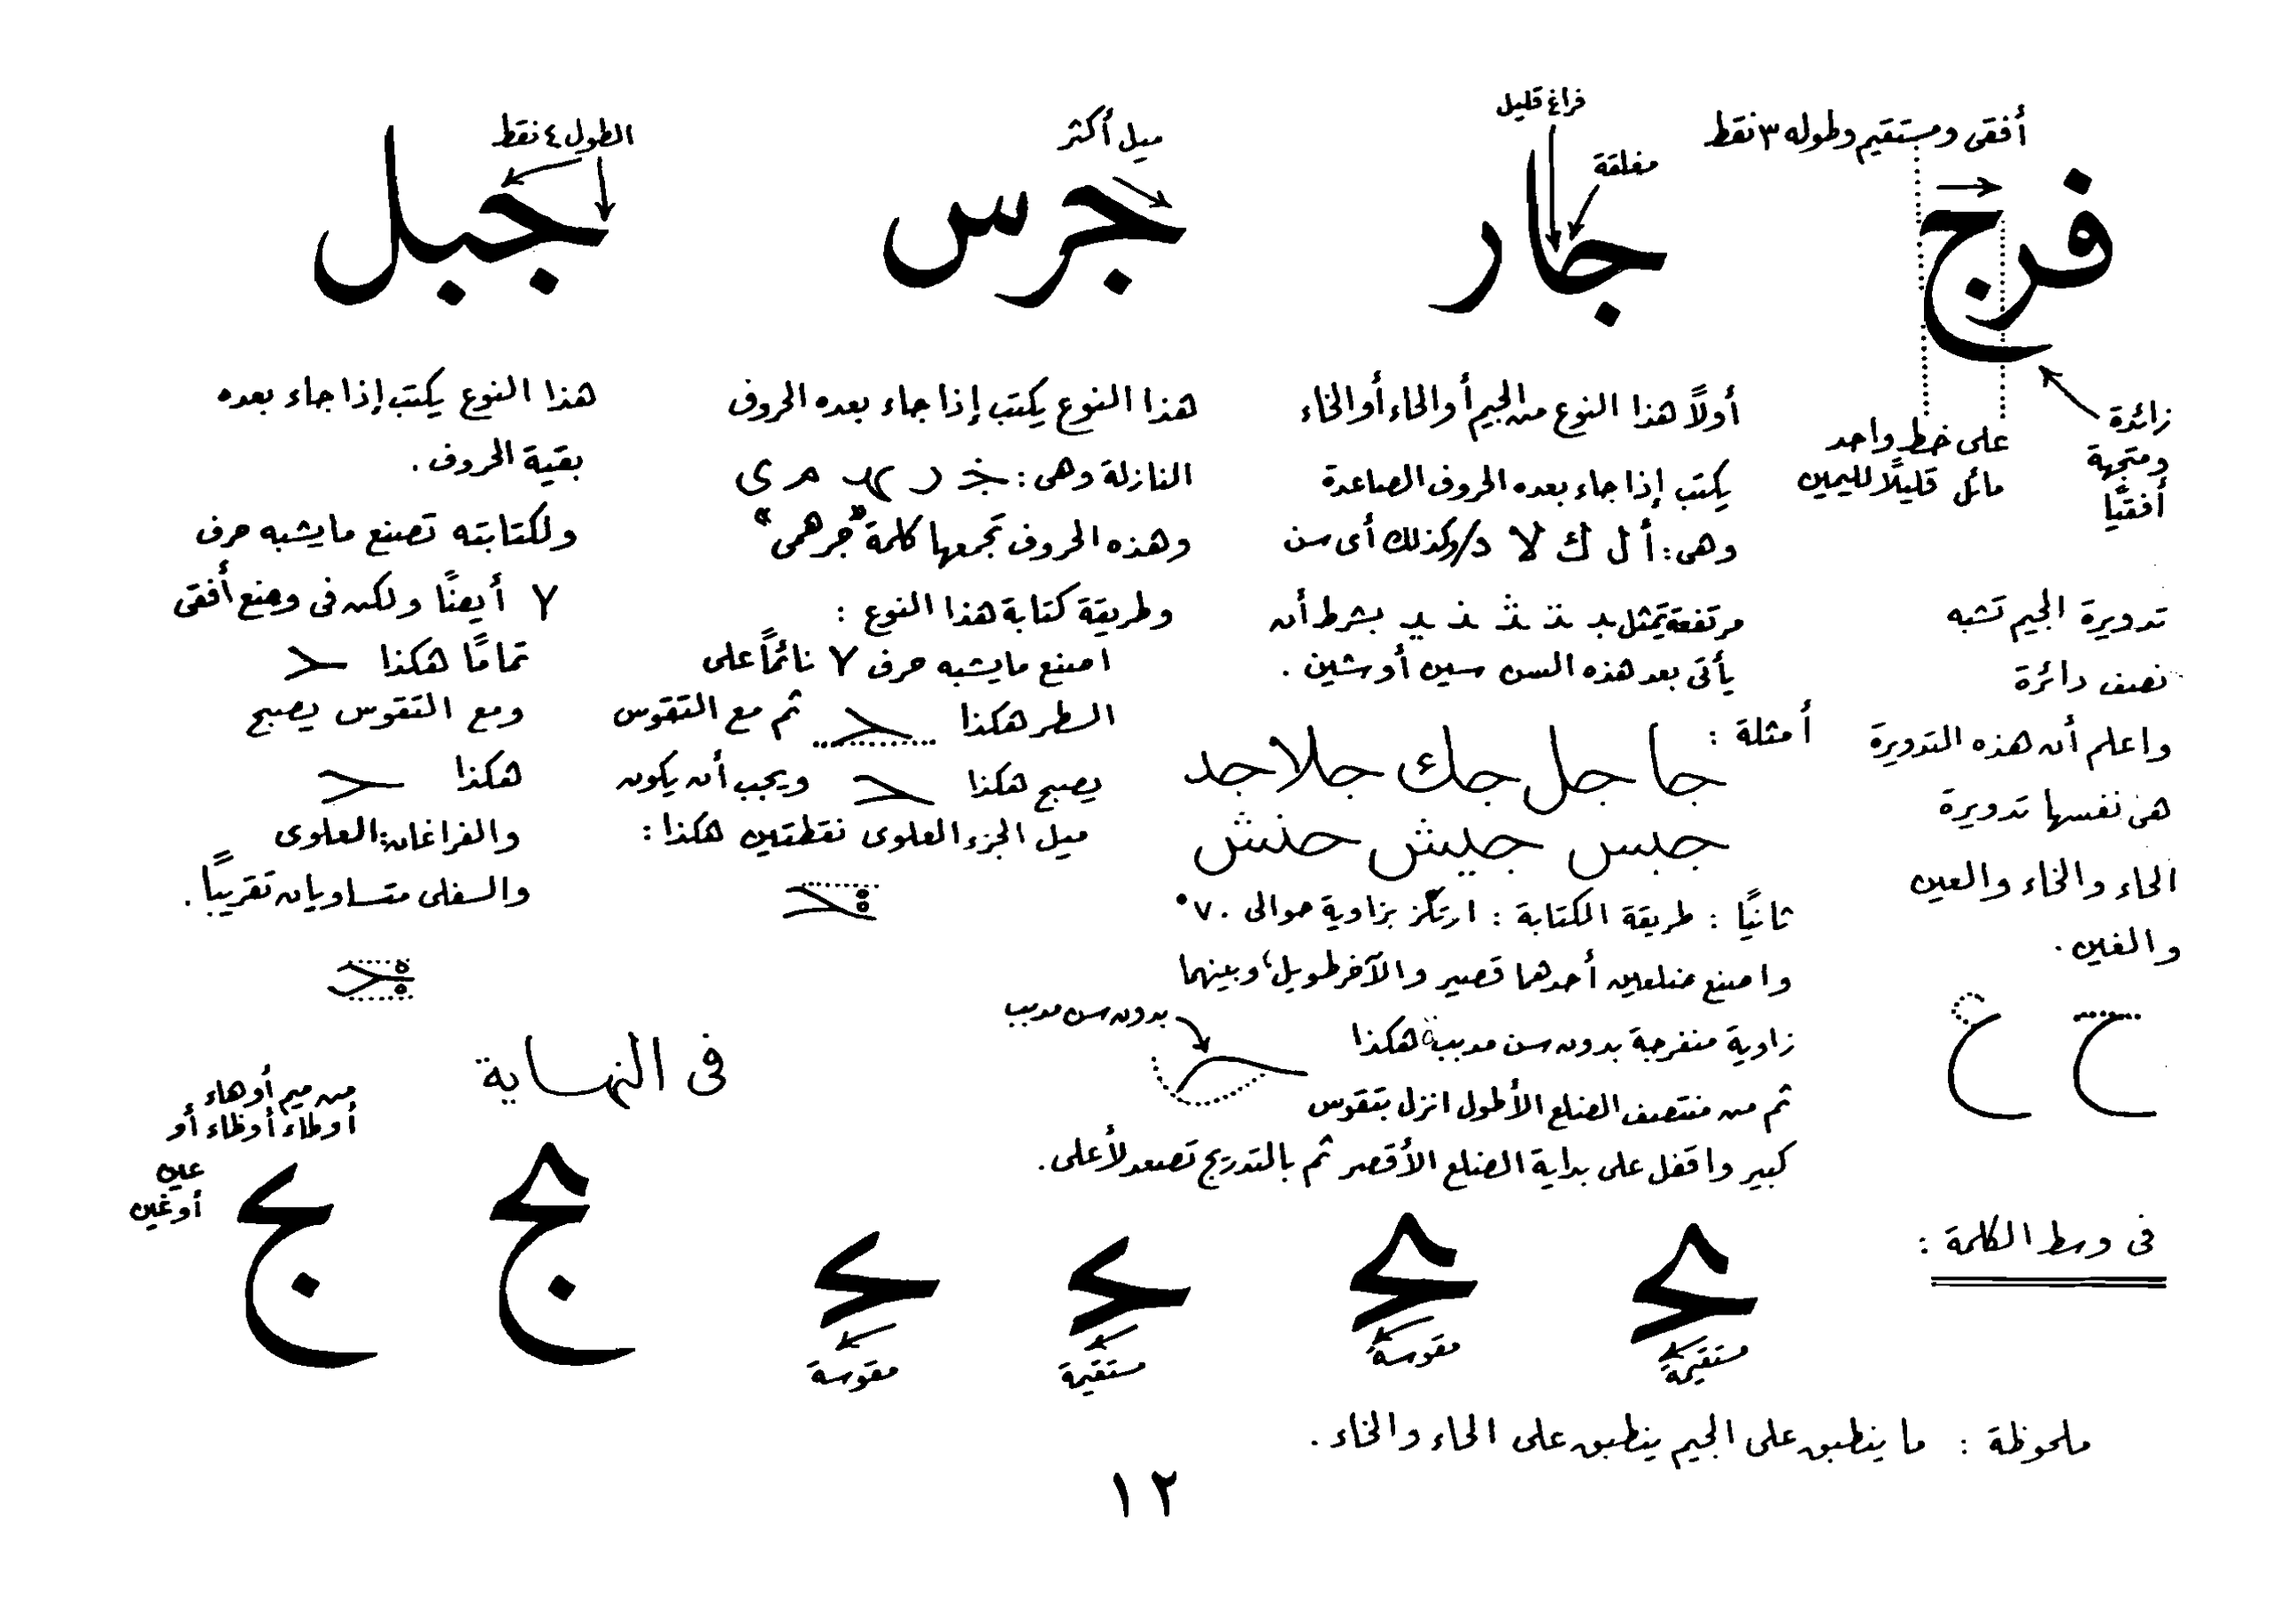 أفقى ومستقيم وطوله ٣ نقط
فرج
زائدة
ومتجهة
أفقيًا
على خط واحد
مائل قليلًا لليمين
تدويرة الجيم تشبه
نصف دائرة
واعلم أن هذه التدويرة
هى نفسها تدويرة
الحاء والخاء والعين
والغين .
ح ع
فراغ قليل
مغلقة
جار
أولًا هذا النوع من الجيم أو الحاء أو الخاء
يكتب إذا جاء بعده الحروف الصاعدة
وهى : أ ل ك لا د/ وكذلك أى سن
مرتفعة يمثل بـ تـ ثـ نـ يـ بشرط أن
يأتى بعد هذه السن سين أو شين .
أمثلة : جا جل جك جلا جد
جبس جيش حنش
ثانيًا : طريقة الكتابة : ارتكز بزاوية حوالى ٧٠°
واصنع ضلعين أحدهما قصير والآخر طويل، وبينهما
زاوية منفرجة بدون سن مدببة هكذا
بدون سن مدبب
ثم من منتصف الضلع الأطول انزل بتقوس
كبير واقفل على بداية الضلع الأقصر ثم بالتدريج تصعد لأعلى .
ميل أكثر
جرس
هذا النوع يكتب إذا جاء بعده الحروف
النازلة وهى : جـ ر هـ مـ ى
وهذه الحروف تجمعها كلمة "جرهمى"
وطريقة كتابة هذا النوع :
اصنع مايشبه حرف ٧ نائمًا على
السطر هكذا ثم مع التقوس
يصبح هكذا ويجب أن يكون
ميل الجزء العلوى نقطتين هكذا :
الطول ٤ نقط
جبل
هذا النوع يكتب إذا جاء بعده
بقية الحروف .
ولكتابته تصنع مايشبه حرف
٧ أيضًا ولكن فى وضع أفقى
تمامًا هكذا
ومع التقوس يصبح
هكذا
والفراغان : العلوى
والسفلى متساويان تقريبًا .
فى وسط الكلمة :
مستقيمة
مقوسة
مستقيمة
مقوسة
فى النهاية
من ميم أو هاء
أو طاء أو ظاء أو
عين
أو غين
ج ج
ملحوظة : ما ينطبق على الجيم ينطبق على الحاء والخاء .
١٢